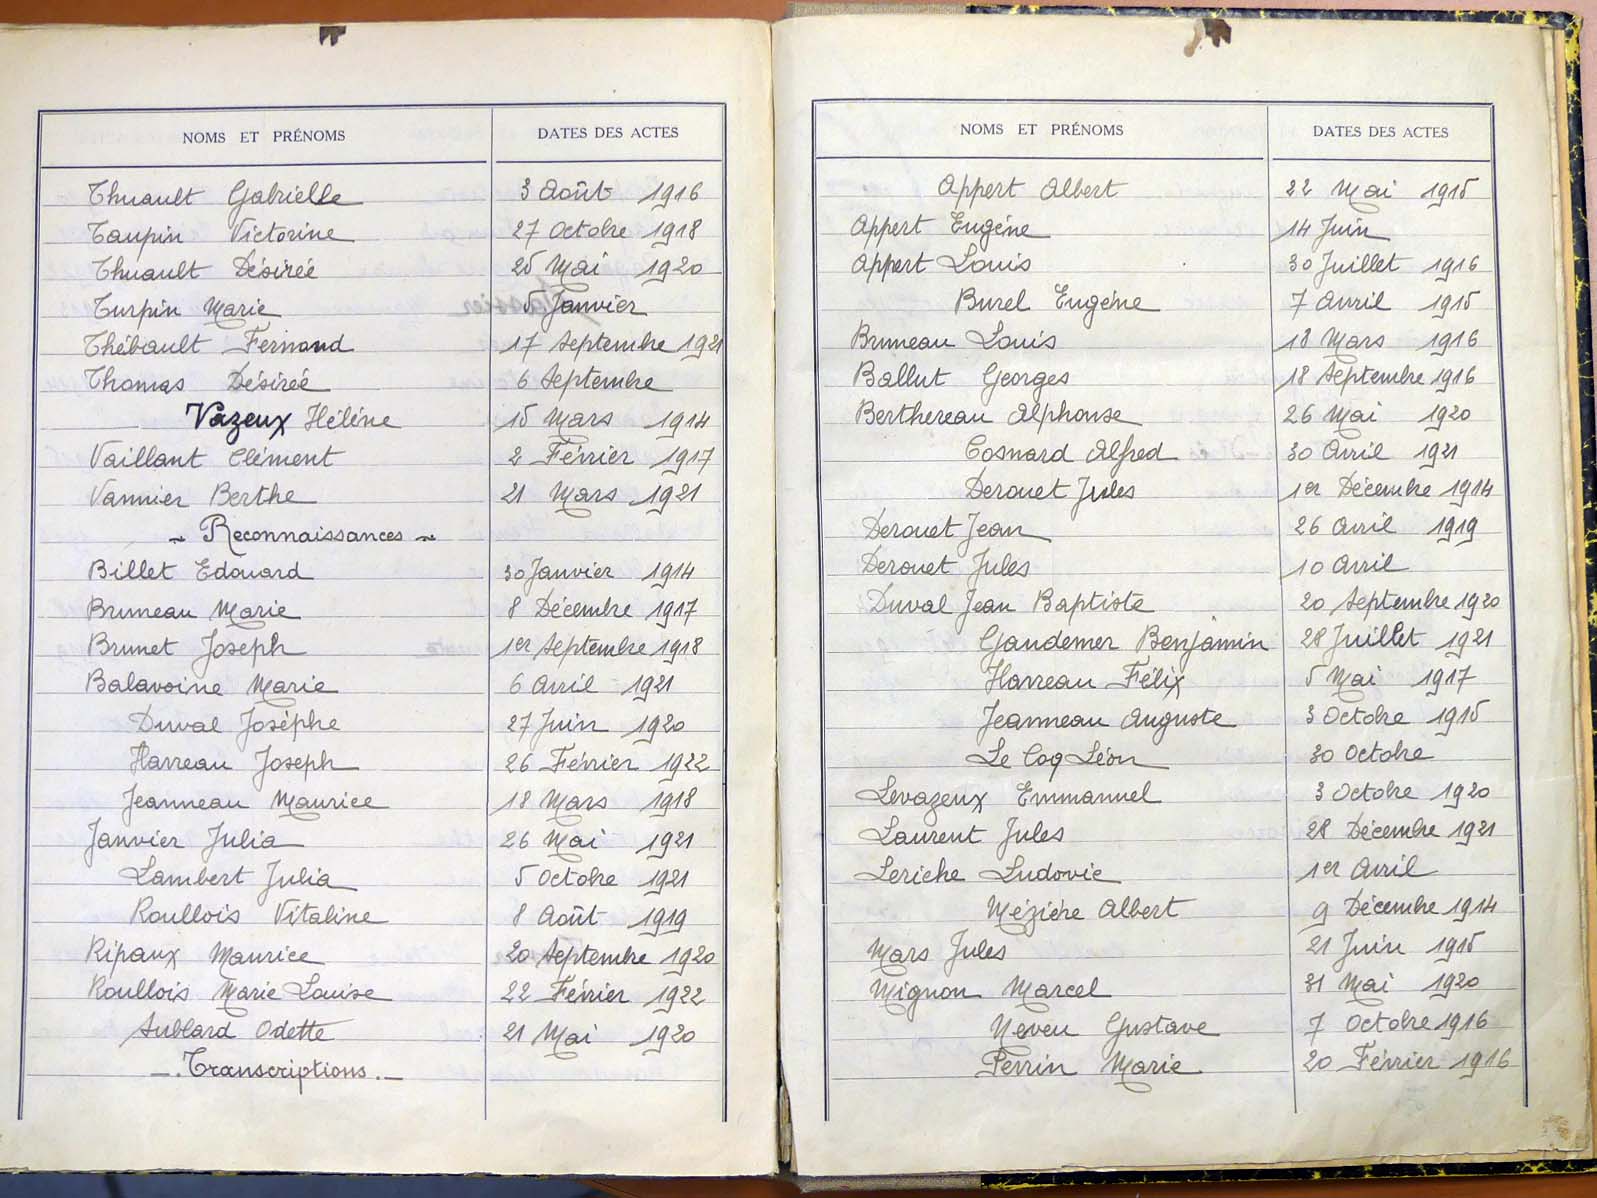 NOMS ET PRÉNOMS DATES DES ACTES
Thuault Gabrielle 3 Août 1916
Taupin Victorine 27 Octobre 1918
Thuault Désirée 25 Mai 1920
Turpin Marie 5 Janvier
Thébault Fernand 17 Septembre 1921
Thomas Désirée 6 Septembre
Vazeux Hélène 15 Mars 1914
Vaillant Clément 2 Février 1917
Vannier Berthe 21 Mars 1921
~ Reconnaissances ~
Billet Edouard 30 Janvier 1914
Bruneau Marie 8 Décembre 1917
Brunet Joseph 1er Septembre 1918
Balavoine Marie 6 Avril 1921
Duval Joséphe 27 Juin 1920
Harreau Joseph 26 Février 1922
Jeanneau Maurice 18 Mars 1918
Janvier Julia 26 Mai 1921
Lambert Julia 5 Octobre 1921
Roullois Vitaline 8 Août 1919
Ripaux Maurice 20 Septembre 1920
Roullois Marie Louise 22 Février 1922
Sublard Odette 21 Mai 1920
-. Transcriptions .-
NOMS ET PRÉNOMS DATES DES ACTES
Appert Albert 22 Mai 1915
Appert Eugène 14 Juin
Appert Louis 30 Juillet 1916
Burel Eugène 7 Avril 1915
Bruneau Louis 18 Mars 1916
Ballut Georges 18 Septembre 1916
Berthereau Alphonse 26 Mai 1920
Cosnard Alfred 30 Avril 1921
Derouet Jules 1er Décembre 1914
Derouet Jean 26 Avril 1919
Derouet Jules 10 Avril
Duval Jean Baptiste 20 Septembre 1920
Gaudemer Benjamin 28 Juillet 1921
Harreau Félix 5 Mai 1917
Jeanneau Auguste 3 Octobre 1915
Le Coq Léon 30 Octobre
Levazeux Emmanuel 3 Octobre 1920
Laurent Jules 28 Décembre 1921
Leriche Ludovic 1er Avril
Mézière Albert 9 Décembre 1914
Mars Jules 21 Juin 1915
Mignon Marcel 31 Mai 1920
Neveu Gustave 7 Octobre 1916
Perrin Marie 20 Février 1916